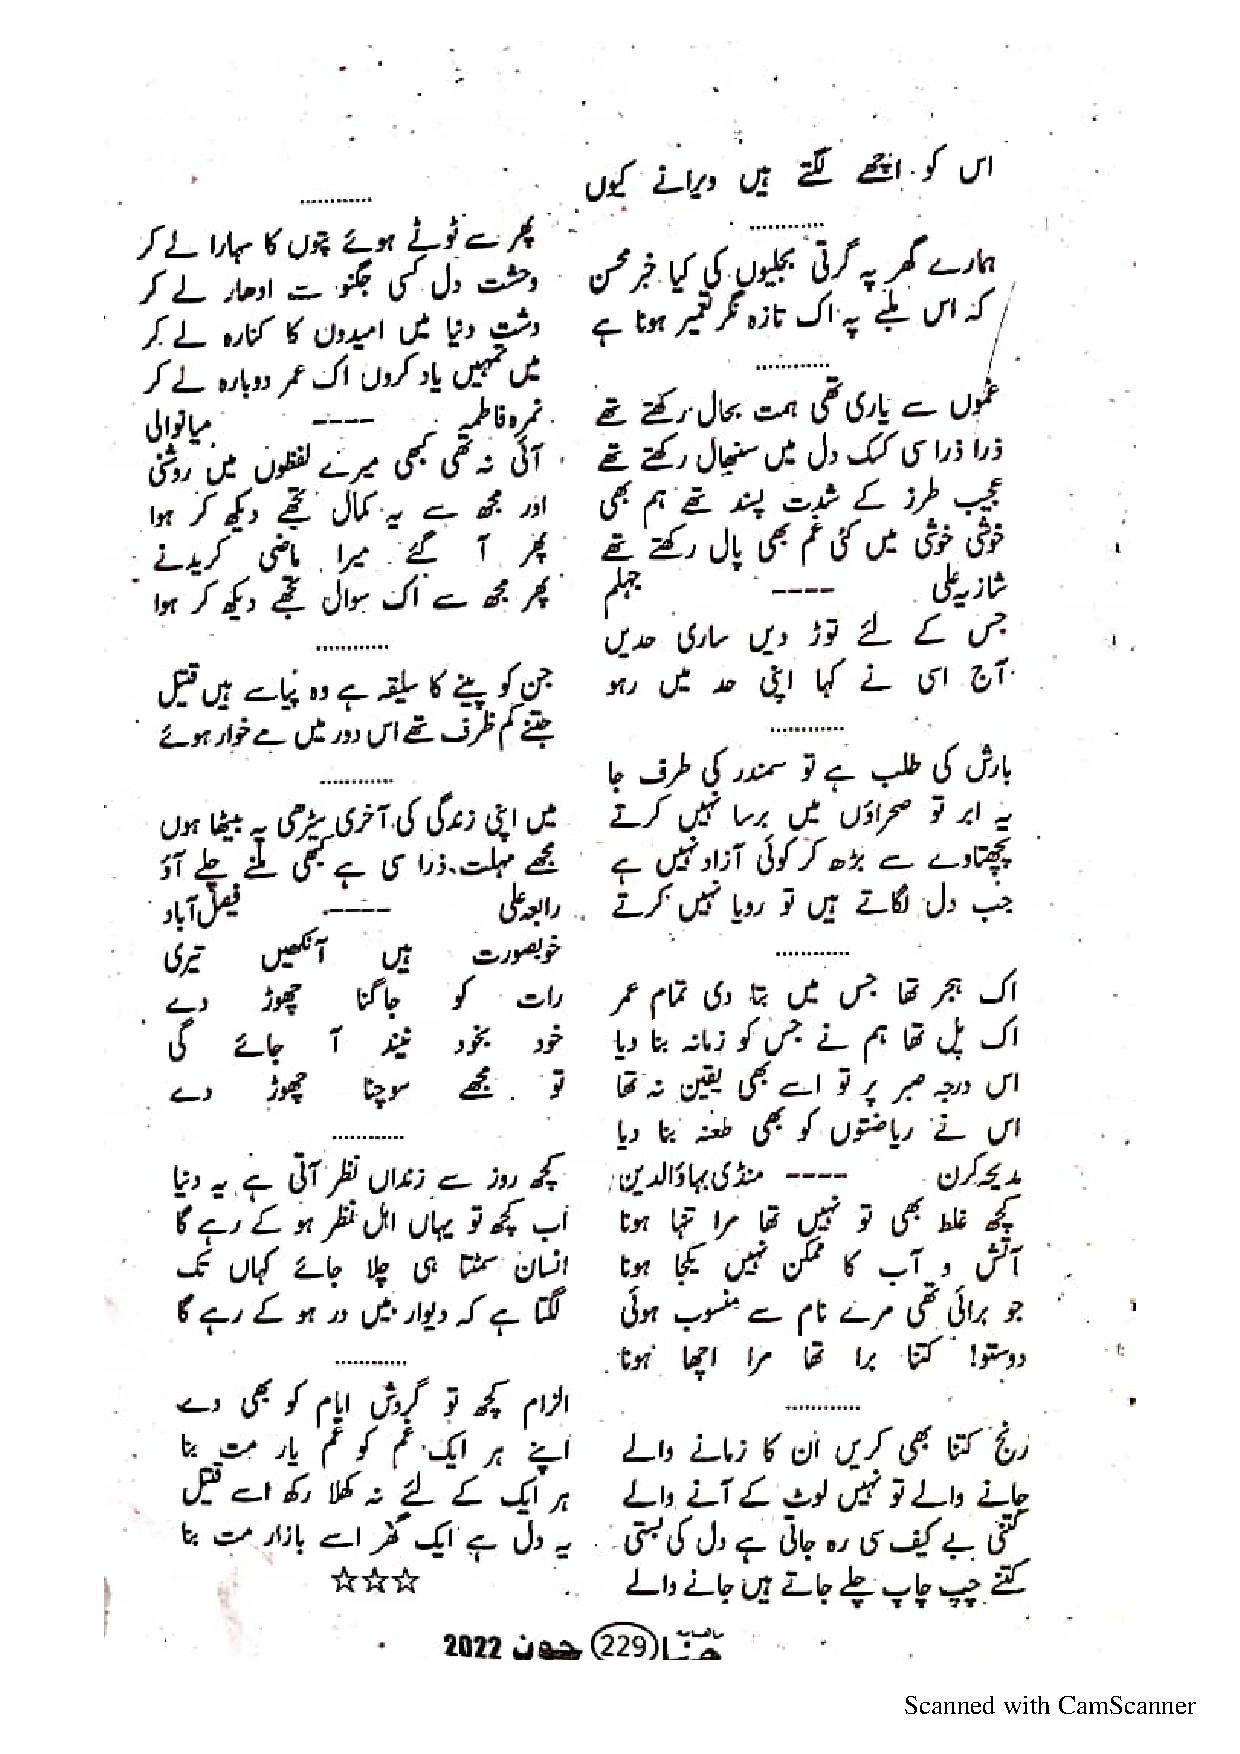 اس کو اچھے لگتے ہیں ویرانے کیوں
............
ہمارے گھر پہ گرتی بجلیوں کی کیا خبر محسن
کہ اس ملبے پہ اک تازہ نگر تعمیر ہوتا ہے
............
غموں سے یاری تھی ہمت بحال رکھتے تھے
ذرا ذرا سی کسک دل میں سنبھال رکھتے تھے
عجیب طرز کے شدت پسند تھے ہم بھی
خوشی خوشی میں کئی غم بھی پال رکھتے تھے
شازیہ علی ---- جہلم
جس کے لئے توڑ دیں ساری حدیں
آج اسی نے کہا اپنی حد میں رہو
............
بارش کی طلب ہے تو سمندر کی طرف جا
یہ ابر تو صحراؤں میں برسا نہیں کرتے
پچھتاوے سے بڑھ کر کوئی آزاد نہیں ہے
جب دل لگاتے ہیں تو رویا نہیں کرتے
............
اک ہجر تھا جس میں بتا دی تمام عمر
اک پل تھا ہم نے جس کو زمانہ بنا دیا
اس درجہ صبر پر تو اسے بھی یقین نہ تھا
اس نے ریاضتوں کو بھی طعنہ بنا دیا
مدیحہ کرن ---- منڈی بہاؤالدین
کچھ غلط بھی تو نہیں تھا مرا تنہا ہونا
آتش و آب کا ممکن نہیں یکجا ہونا
جو برائی تھی مرے نام سے منسوب ہوئی
دوستو! کتنا برا تھا مرا اچھا ہونا
............
رنج کتنا بھی کریں ان کا زمانے والے
جانے والے تو نہیں لوٹ کے آنے والے
کتنی بے کیف سی رہ جاتی ہے دل کی بستی
کتنے چپ چاپ چلے جاتے ہیں جانے والے
............
پھر سے ٹوٹے ہوئے پتوں کا سہارا لے کر
وحشت دل کسی جگنو سے ادھار لے کر
دشت دنیا میں امیدوں کا کنارہ لے کر
میں تمہیں یاد کروں اک عمر دوبارہ لے کر
نمرہ فاطمہ ---- میانوالی
آئی نہ تھی کبھی میرے لفظوں میں روشنی
اور مجھ سے یہ کمال تجھے دیکھ کر ہوا
پھر آ گئے میرا ماضی کریدنے
پھر مجھ سے اک سوال تجھے دیکھ کر ہوا
............
جن کو پینے کا سلیقہ ہے وہ پیاسے ہیں قتیل
جتنے کم ظرف تھے اس دور میں مے خوار ہوئے
............
میں اپنی زندگی کی آخری سیڑھی پہ بیٹھا ہوں
مجھے مہلت ذرا سی ہے کبھی ملنے چلے آؤ
رابعہ علی ---- فیصل آباد
خوبصورت ہیں آنکھیں تیری
رات کو جاگنا چھوڑ دے
خود بخود نیند آ جائے گی
تو مجھے سوچنا چھوڑ دے
............
کچھ روز سے زنداں نظر آتی ہے یہ دنیا
اب کچھ تو یہاں اہل نظر ہو کے رہے گا
انسان سمٹتا ہی چلا جائے کہاں تک
لگتا ہے کہ دیوار میں در ہو کے رہے گا
............
الزام کچھ تو گردش ایام کو بھی دے
اپنے ہر ایک غم کو غم یار مت بنا
ہر ایک کے لئے نہ کھلا رکھ اسے قتیل
یہ دل ہے ایک گھر اسے بازار مت بنا
☆☆☆
ماہنامہ حنا 229 جون 2022
Scanned with CamScanner